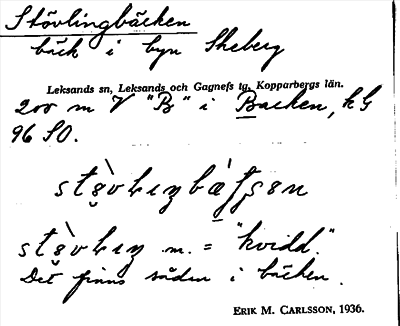 Stövlingbäcken
bäck i byn Skeberg
Leksands sn, Leksands och Gagnefs tg, Kopparbergs län.
200 m V "B" i Backen, kG
96 SO.
m. = "kvidd."
Det finns sådan i bäcken.
ERIK M. CARLSSON, 1936.